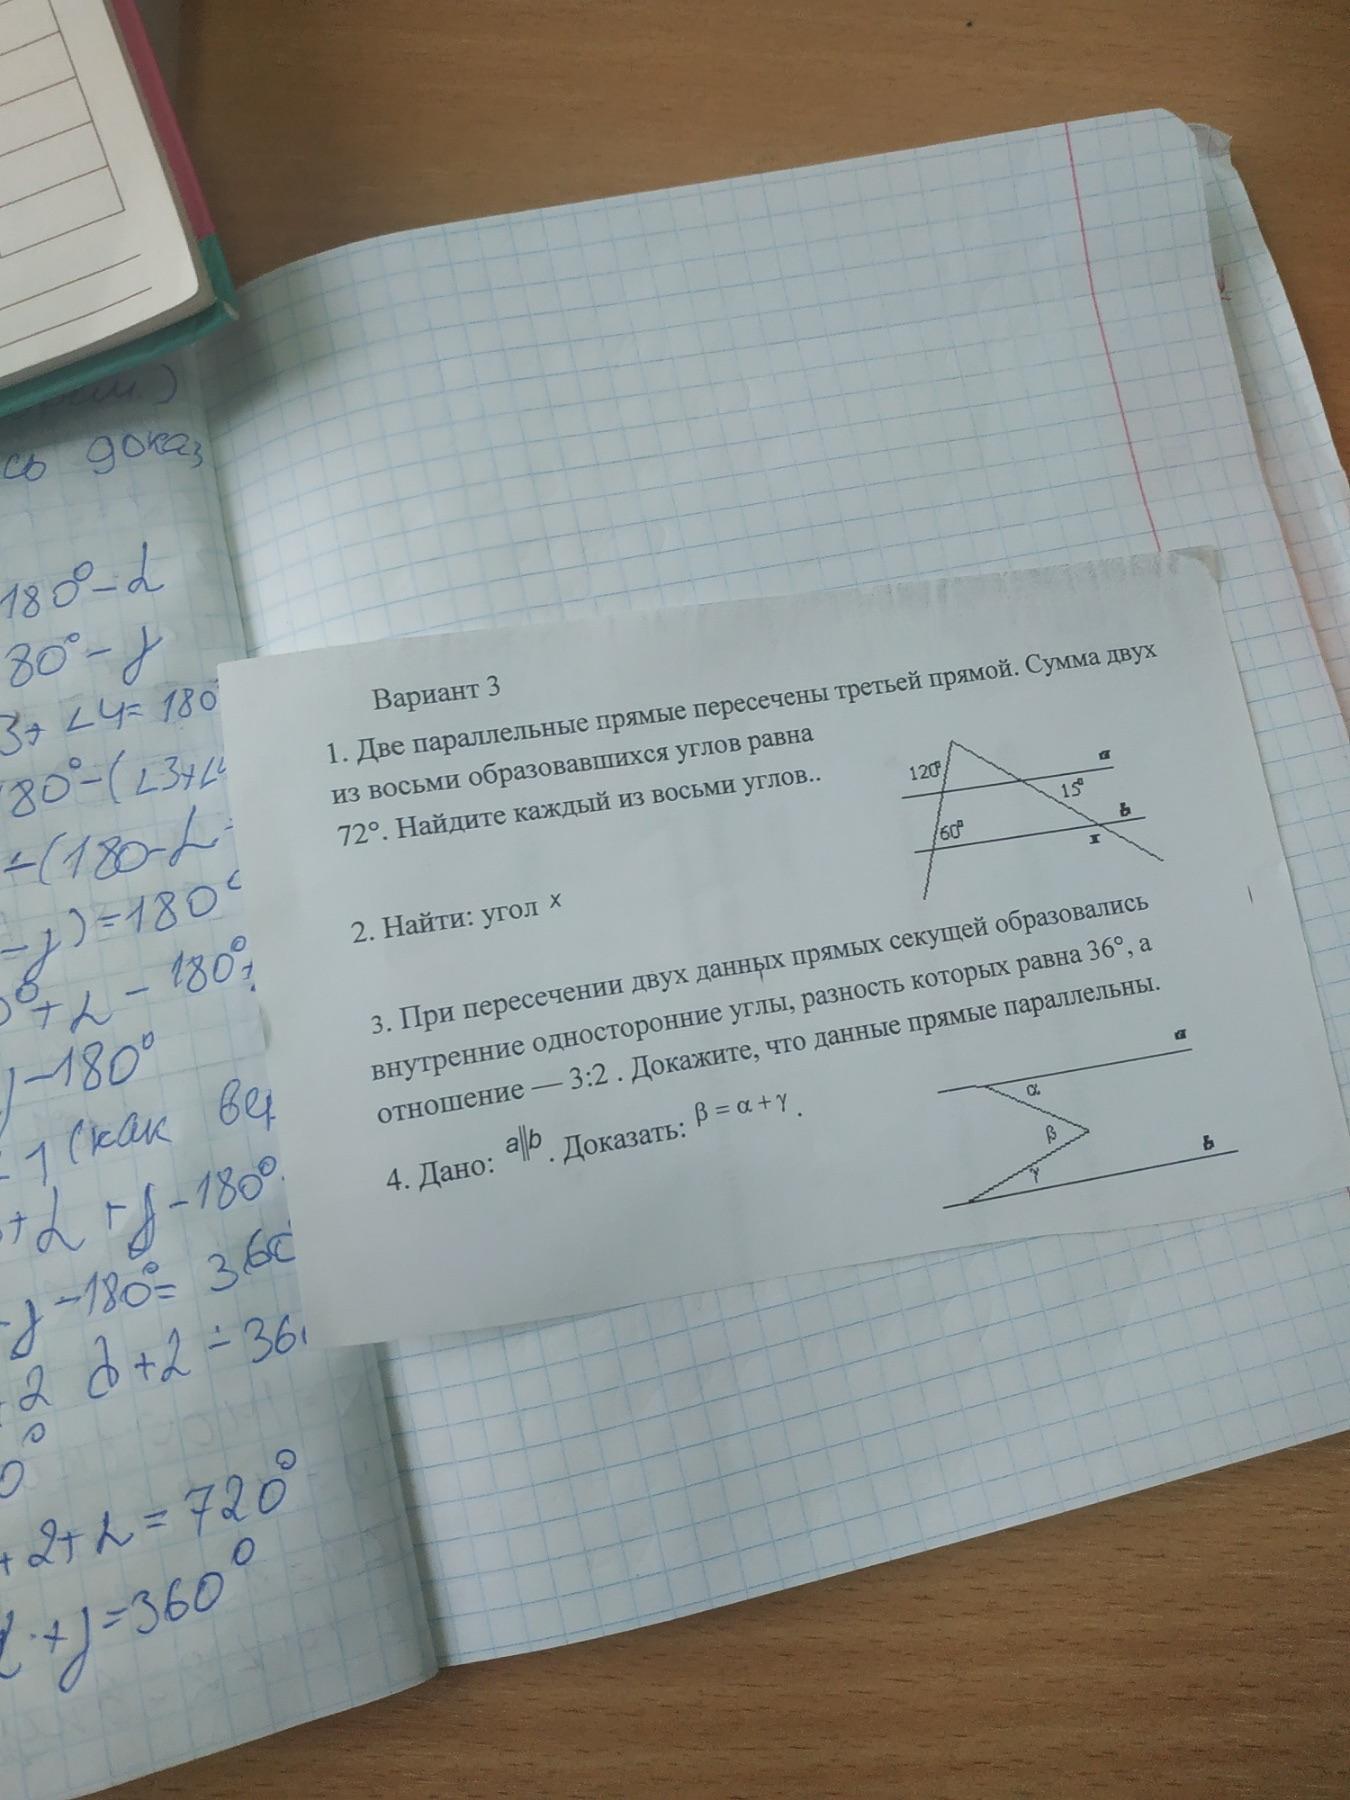 сь доказ
180° - α
80° - γ
3 + ∠4 = 180
80° - (∠3 + ∠4
- (180 - α
- γ) = 180°
° + α - 180° +
- 180°
1 (как вер
+ α + γ - 180°
- γ - 180° = 360
+ 2 + 2 = 720°
+ γ = 360°
Вариант 3
1. Две параллельные прямые пересечены третьей прямой. Сумма двух
из восьми образовавшихся углов равна
72°. Найдите каждый из восьми углов..
120°
a
15°
60°
b
x
2. Найти: угол x
3. При пересечении двух данных прямых секущей образовались
внутренние односторонние углы, разность которых равна 36°, а
отношение — 3:2 . Докажите, что данные прямые параллельны.
4. Дано: a||b . Доказать: β = α + γ .
a
α
β
γ
b